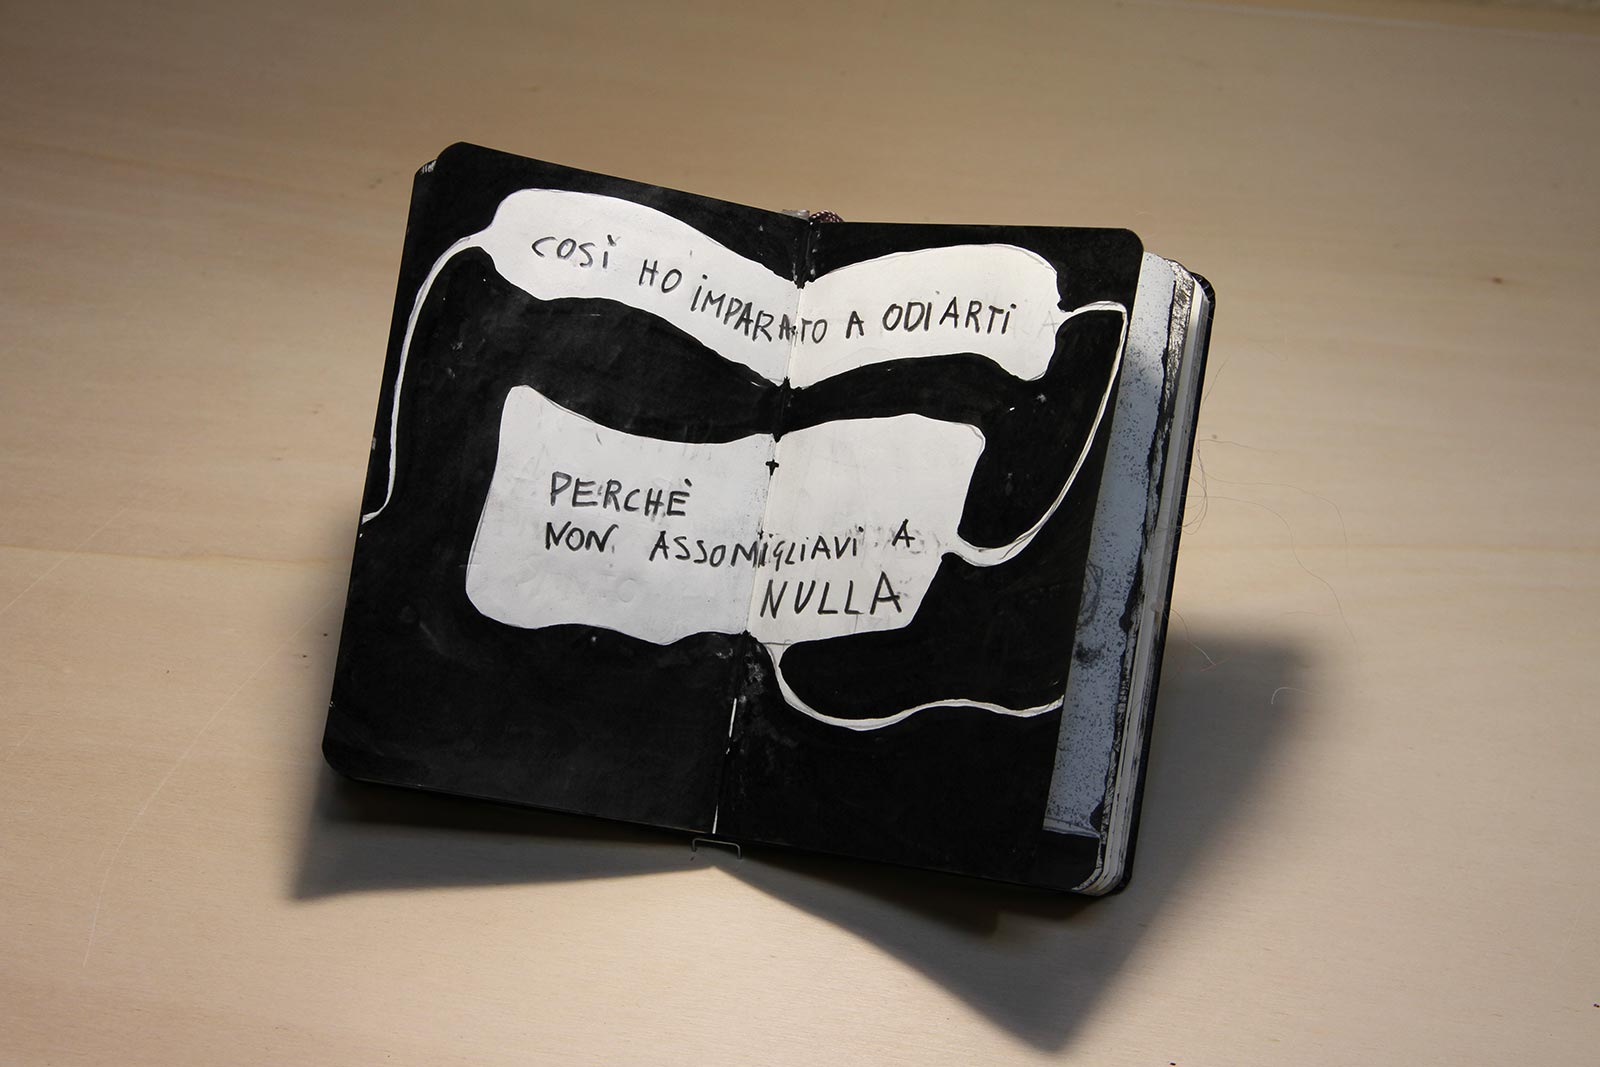 COSÌ HO iMPARATO A ODiARTi
PERCHÈ
NON ASSOMiGLiAVi A
NULLA